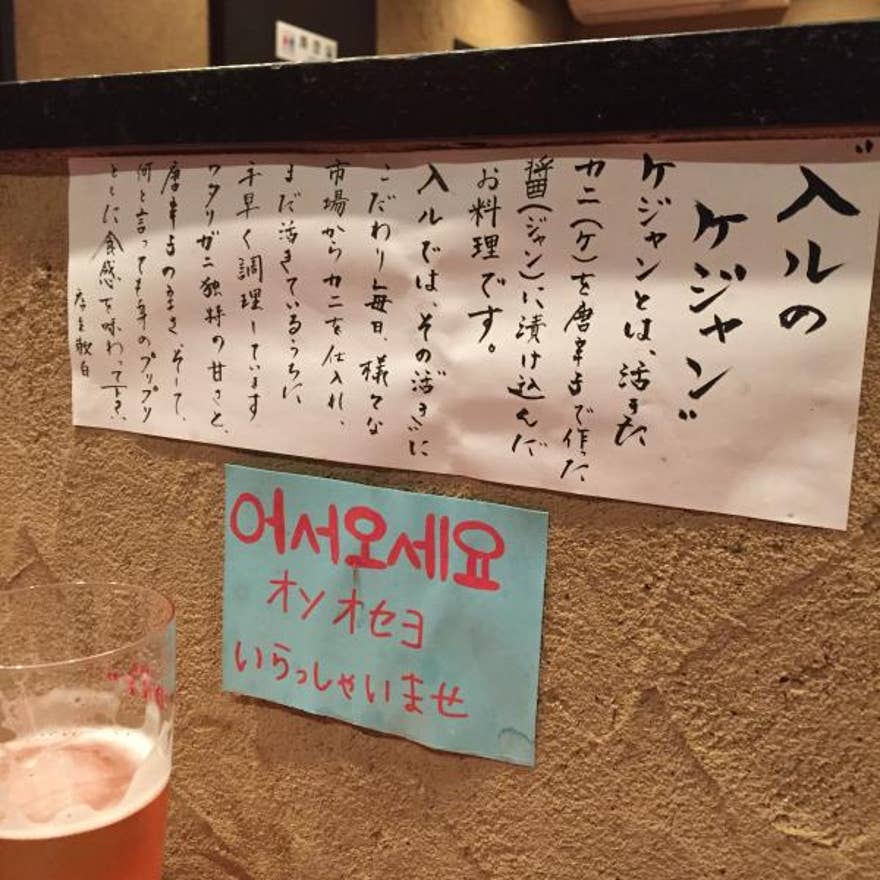 "入ルの
ケジャン"
ケジャンとは、活きた
カニ(ケ)を唐辛子で作った
醤(ジャン)に漬け込んだ
お料理です。
入ルでは、その"活き"に
こだわり毎日、様々な
市場からカニを仕入れ、
まだ活きているうちに
手早く調理しています
ワタリガニ独特の甘さと、
唐辛子の辛さ、そして、
何と言っても身のプリプリ
とした食感を味わって下さい、
店主敬白
어서오세요
オソオセヨ
いらっしゃいませ